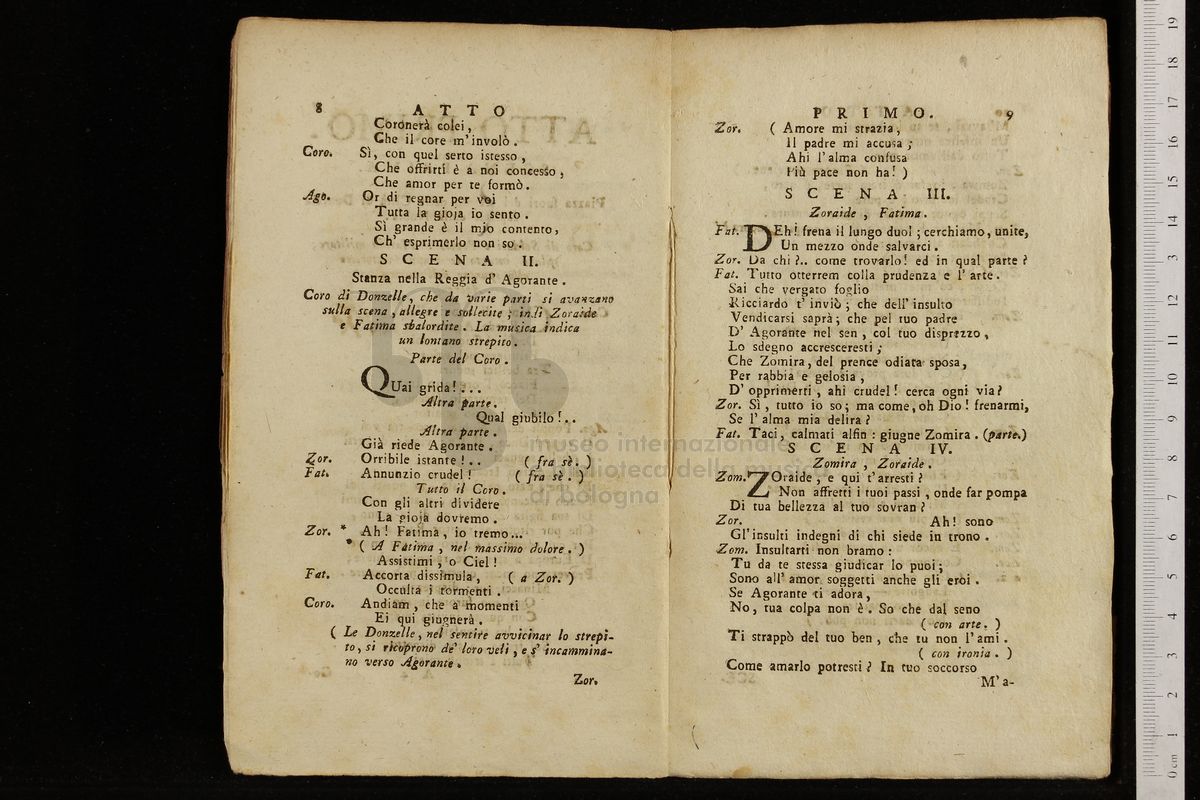 8 ATTO
Coronerà colei,
Che il core m'involò.
Coro. Sì, con quel serto istesso,
Che offrirti è a noi concesso,
Che amor per te formò.
Ago. Or di regnar per voi
Tutta la gioja io sento.
Sì grande è il mio contento,
Ch' esprimerlo non so.
SCENA II.
Stanza nella Reggia d' Agorante.
Coro di Donzelle, che da varie parti si avanzano
sulla scena, allegre e sollecite; indi Zoraide
e Fatima sbalordite. La musica indica
un lontano strepito.
Parte del Coro.
QUai grida!...
Altra parte.
Qual giubilo!..
Altra parte.
Già riede Agorante.
Zor. Orribile istante!.. (fra sè.)
Fat. Annunzio crudel! (fra sè.)
Tutto il Coro.
Con gli altri dividere
La gioja dovremo.
Zor. * Ah! Fatima, io tremo...
* (A Fatima, nel massimo dolore.)
Assistimi, o Ciel!
Fat. Accorta dissimula, (a Zor.)
Occulta i tormenti.
Coro. Andiam, che a momenti
Ei qui giugnerà.
(Le Donzelle, nel sentire avvicinar lo strepi-
to, si ricoprono de' loro veli, e s' incammina-
no verso Agorante.
Zor.
PRIMO. 9
Zor. (Amore mi strazia,
Il padre mi accusa;
Ahi l'alma confusa
Più pace non ha!)
SCENA III.
Zoraide, Fatima.
Fat. DEh! frena il lungo duol; cerchiamo, unite,
Un mezzo onde salvarci.
Zor. Da chi?.. come trovarlo! ed in qual parte?
Fat. Tutto otterrem colla prudenza e l'arte.
Sai che vergato foglio
Ricciardo t'inviò; che dell'insulto
Vendicarsi saprà; che pel tuo padre
D' Agorante nel sen, col tuo disprezzo,
Lo sdegno accresceresti;
Che Zomira, del prence odiata sposa,
Per rabbia e gelosia,
D' opprimerti, ahi crudel! cerca ogni via?
Zor. Sì, tutto io so; ma come, oh Dio! frenarmi,
Se l'alma mia delira?
Fat. Taci, calmati alfin: giugne Zomira. (parte.)
SCENA IV.
Zomira, Zoraide.
Zom. ZOraide, e qui t'arresti?
Non affretti i tuoi passi, onde far pompa
Di tua bellezza al tuo sovran?
Zor. Ah! sono
Gl'insulti indegni di chi siede in trono.
Zom. Insultarti non bramo:
Tu da te stessa giudicar lo puoi;
Sono all' amor soggetti anche gli eroi.
Se Agorante ti adora,
No, tua colpa non è. So che dal seno
(con arte.)
Ti strappò del tuo ben, che tu non l'ami.
(con ironia.)
Come amarlo potresti? In tuo soccorso
M'a-
museo internazionale
biblioteca della musica
di bologna
0 cm 1 2 3 4 5 6 7 8 9 10 11 12 13 14 15 16 17 18 19